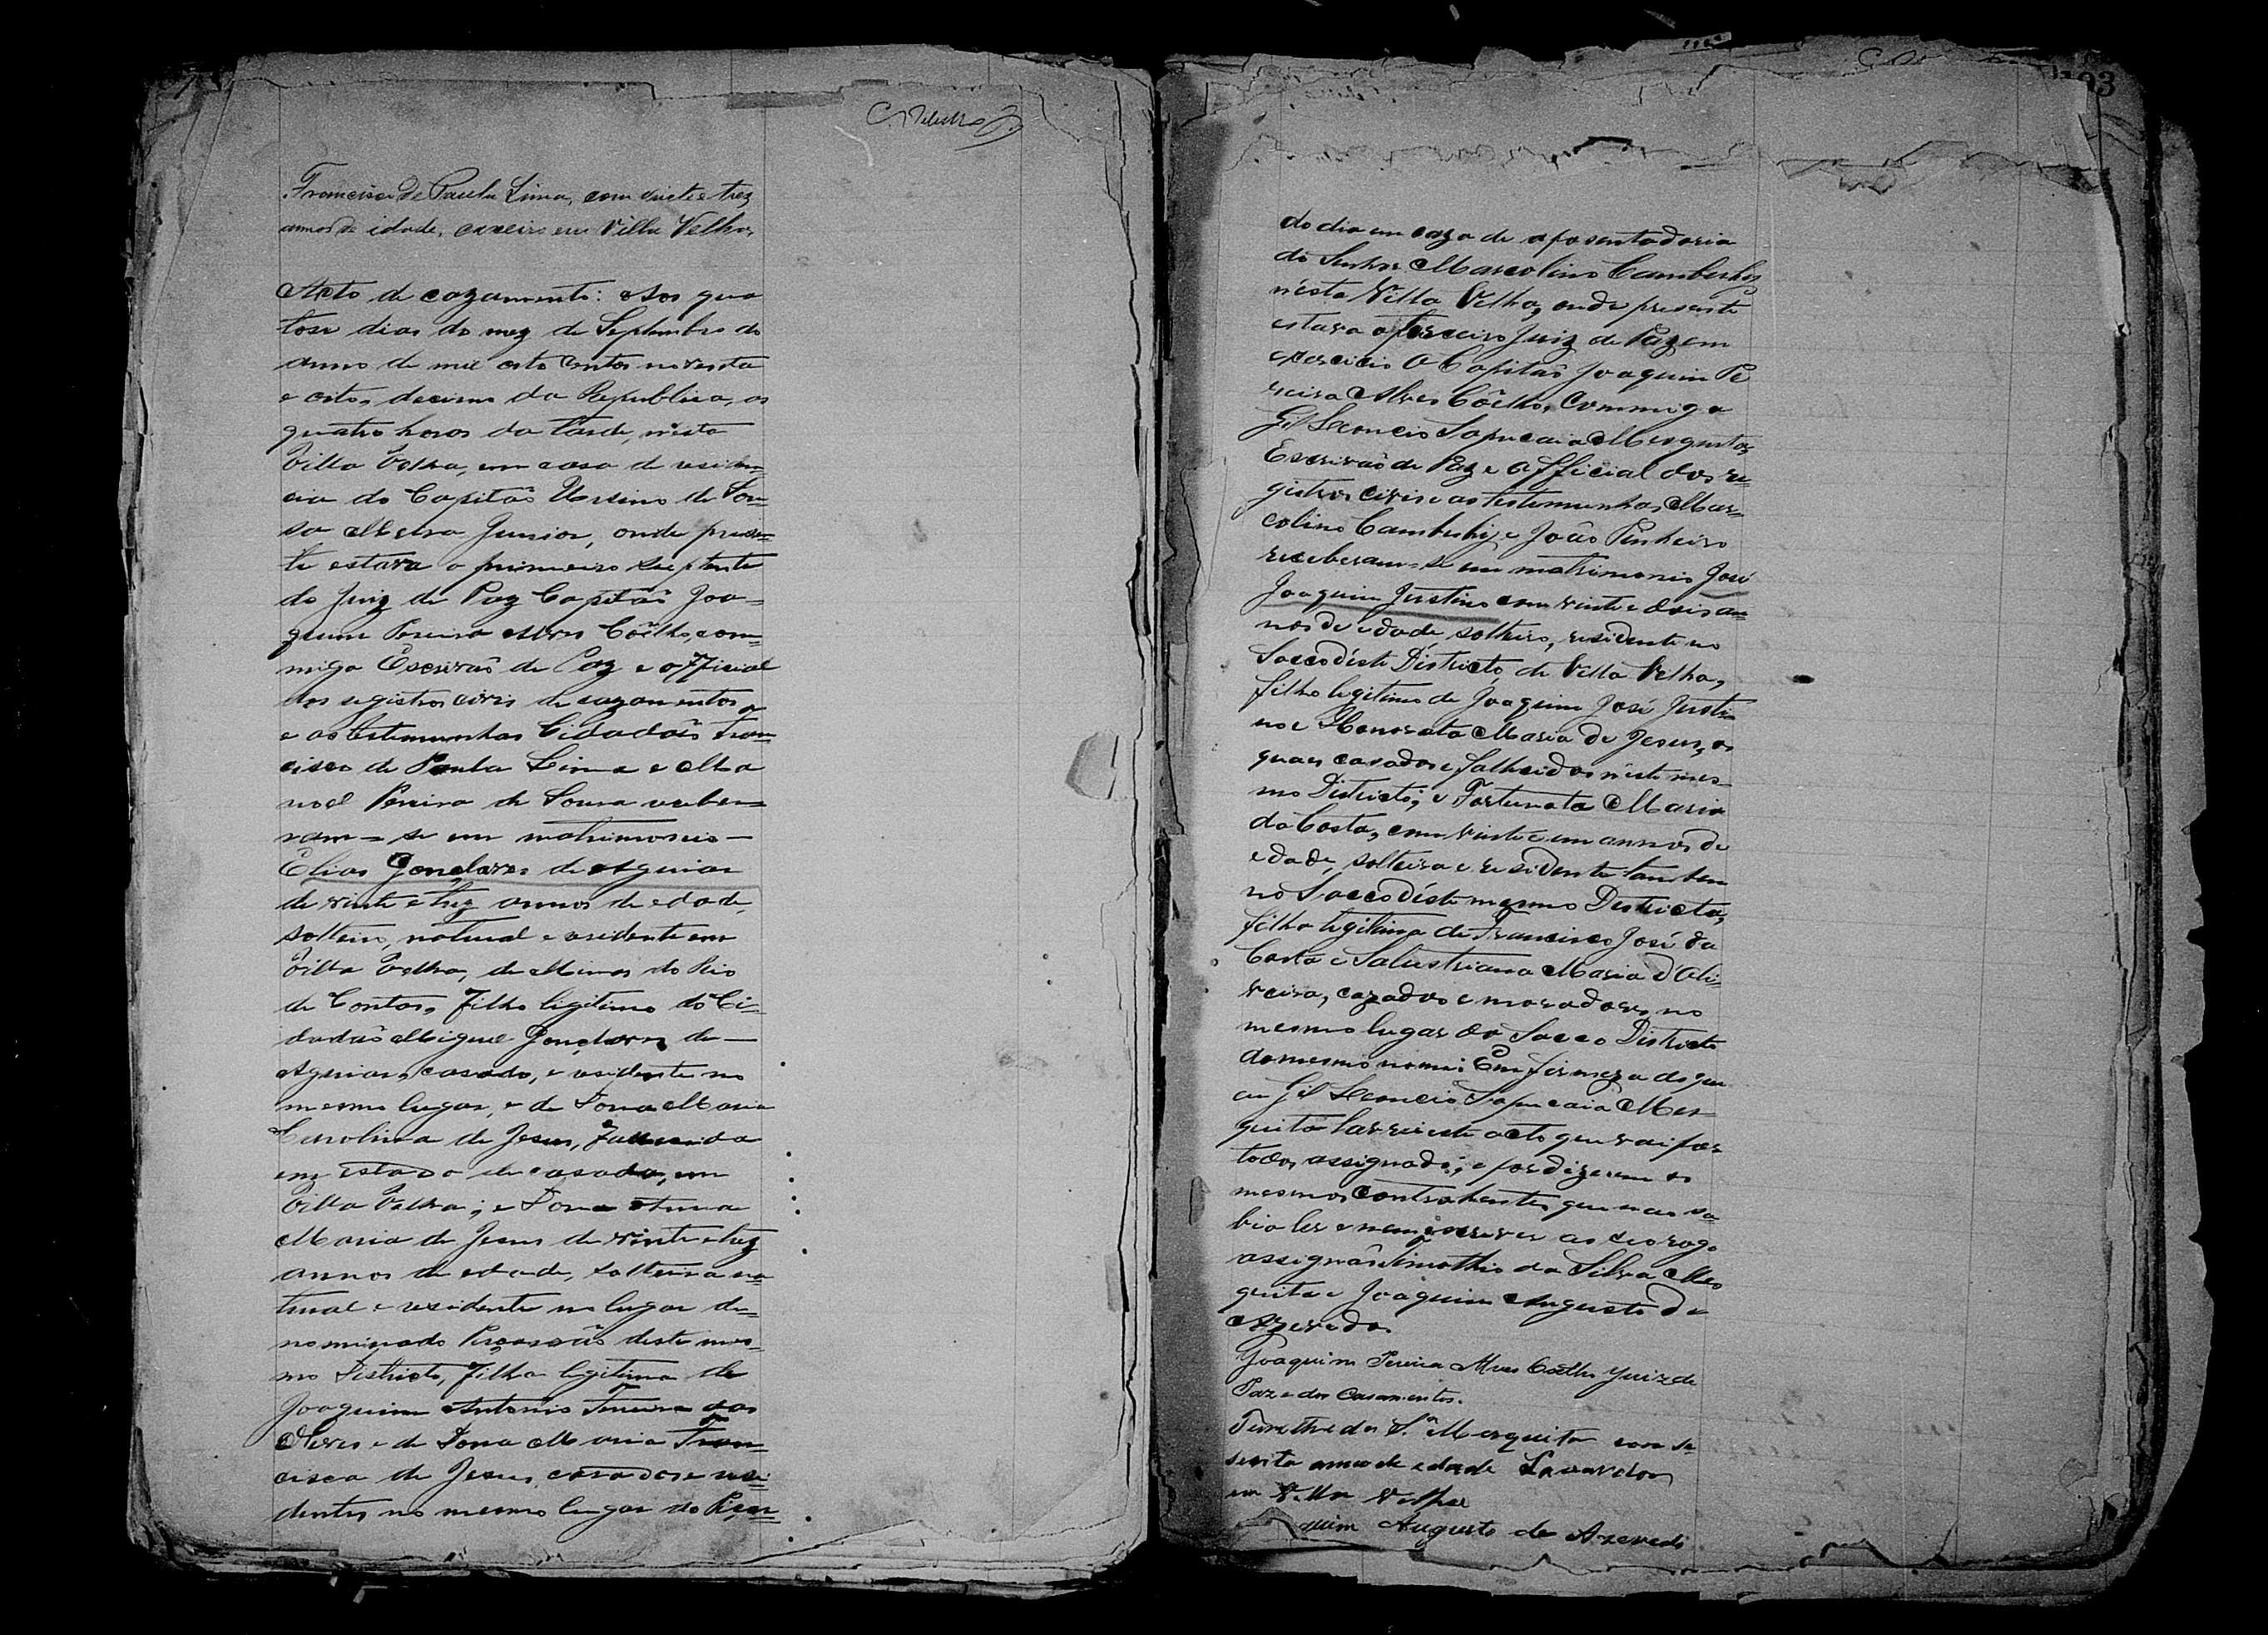 Francisco de Paula Lima, com vinte e trez
annos de idade, caxeiro em Villa Velha,
Acto de cazamento: Aos qua
torse dias do mez de Septembro do
anno de mil oito centos noventa
e oito, decimo da Republica, as
quatro horas da tarde, n'esta
Villa Velha, em casa de residen=
cia do Capitão Ursino de Sou=
sa Meira Junior, onde presen=
te estava o primeiro suplente
do Juiz de Paz Capitão Joa=
quim Pereira Alves Coêlho, com=
migo Escrivão de Paz e official
dos registros civis de cazamentos,
e as testemunhas Cidadãos Fran=
cisco de Paula Lima e Ma
noel Pereira de Sousa recebe=
ram=se em matrimonio
Elias Gonçalves de Aguiar
de vinte e trez annos de edade,
solteiro, natural e residente em
Villa Velha, de Minas do Rio
de Contas, filho ligitimo do Ci=
dadão Miguel Gonçalves de
Aguiar, casado, e residente no
mesmo lugar, e de Dona Maria
Carolina de Jesus, fallecida
em estado de casada, em
Villa Velha; e Dona Anna
Maria de Jesus de vinte e trez
annos de edade, solteira na=
tural e residente no lugar de=
nominado deste mes=
mo Districto, filha ligitima de
Joaquim Antonio Ferreira das
Neves e de Dona Maria Fran=
cisca de Jesus, casados e resi=
dentes no mesmo lugar do
193
do dia em caza de aposentadoria
do Senhor Marcolino
n'esta Villa Velha, onde presente
estava o terceiro Juiz de Paz em
exercicio o Capitão Joaquim Pe
reira Alves Coêlho, Commigo
Gil Leoncio Sapucaia Mesquita,
Escrivão de Paz e official dos re=
gistros civis e as testemunhas Mar=
colino e João Pinheiro
receberam=se em matrimonio José
Joaquim Justino com vinte e dois an
nos de edade solteiro, residente no
Sacco déste Districto de Villa Velha,
filho legitimo de Joaquim José Justi
no e Honorata Maria de Jesus, os
quaes casados e falhecidos n'este mes=
mo Districto; e Fortunata Maria
da Costa, com vinte e um annos de
edade, solteira e residente tambem
no Sacco déste mesmo Districto,
filha legitima de Francisco José da
Costa e Salustriana Maria d'Oli=
veira, cazados e moradores no
mesmo lugar do Sacco Districto
do mesmo nome: Em firmeza do que
eu Gil Leoncio Sapucaia Mes=
quita lavrei este acto que vai por
todos assignado; e por dizerem os
mesmos contrahentes que não sa
bia ler e nem escrever ao seo rogo
assignão Timothio da Silva Mes
quita e Joaquim Augusto de
Azevedo.
Joaquim Pereira Alves Coêlho Juiz de
Paz e dos Casamentos.
da S.ª Mesquita com se
senta annos de edade Lavrador
em Villa Velha
quim Augusto de Azevedo